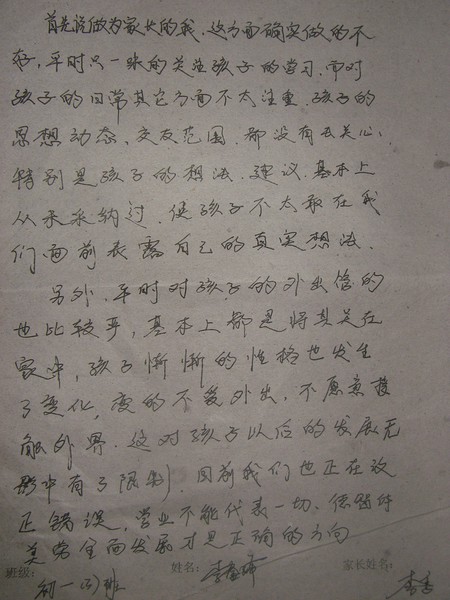 首先说做为家长的我，这方面确实做的不
好，平时只一味的关注孩子的学习，而对
孩子的日常其它方面不太注重，孩子的
思想动态、交友范围，都没有去关心，
特别是孩子的想法、建议，基本上
从未采纳过，使孩子不太敢在我
们面前表露自己的真实想法、
另外，平时对孩子的外出管的
也比较严，基本上都是将其关在
家中，孩子惭惭的性格也发生
了变化，变的不爱外出，不愿意接
触外界，这对孩子以后的发展无
形中有了限制，目前我们也正在改
正错误，学业不能代表一切，德智体
美劳全面发展才是正确的方向
班级： 姓名：李 家长姓名：
初一(3)班 李